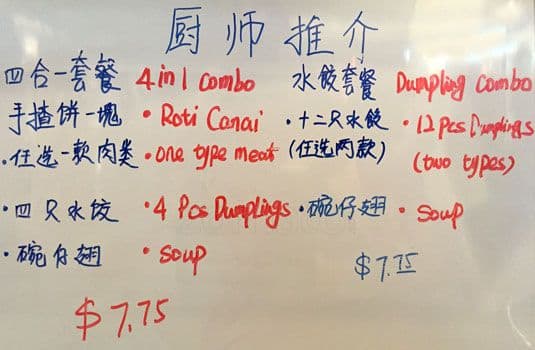 厨师推介
四合一套餐 4 in 1 combo
手揸饼一塊 • Roti Canai
•任选一款肉类 • one type meat
• 四只水饺 • 4 Pcs Dumplings
• 碗仔翅 • soup
$7.75
水饺套餐 Dumpling combo
• 十二只水饺 • 12 Pcs Dumplings
(任选两款) (two types)
• 碗仔翅 • soup
$7.75